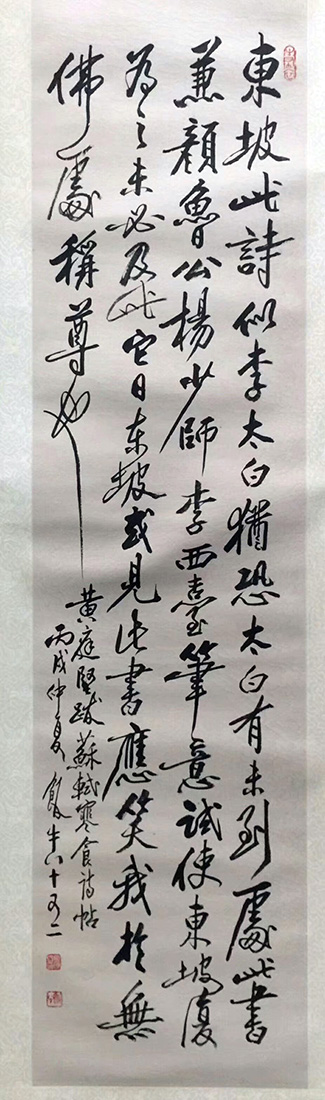 東坡此詩似李太白猶恐太白有未到處此書
兼顏魯公楊少師李西臺筆意試使東坡復
為之未必及此它日東坡或見此書應笑我於無
佛處稱尊也
黃庭堅跋蘇軾寒食詩帖
丙戌仲夏 牛八十又二